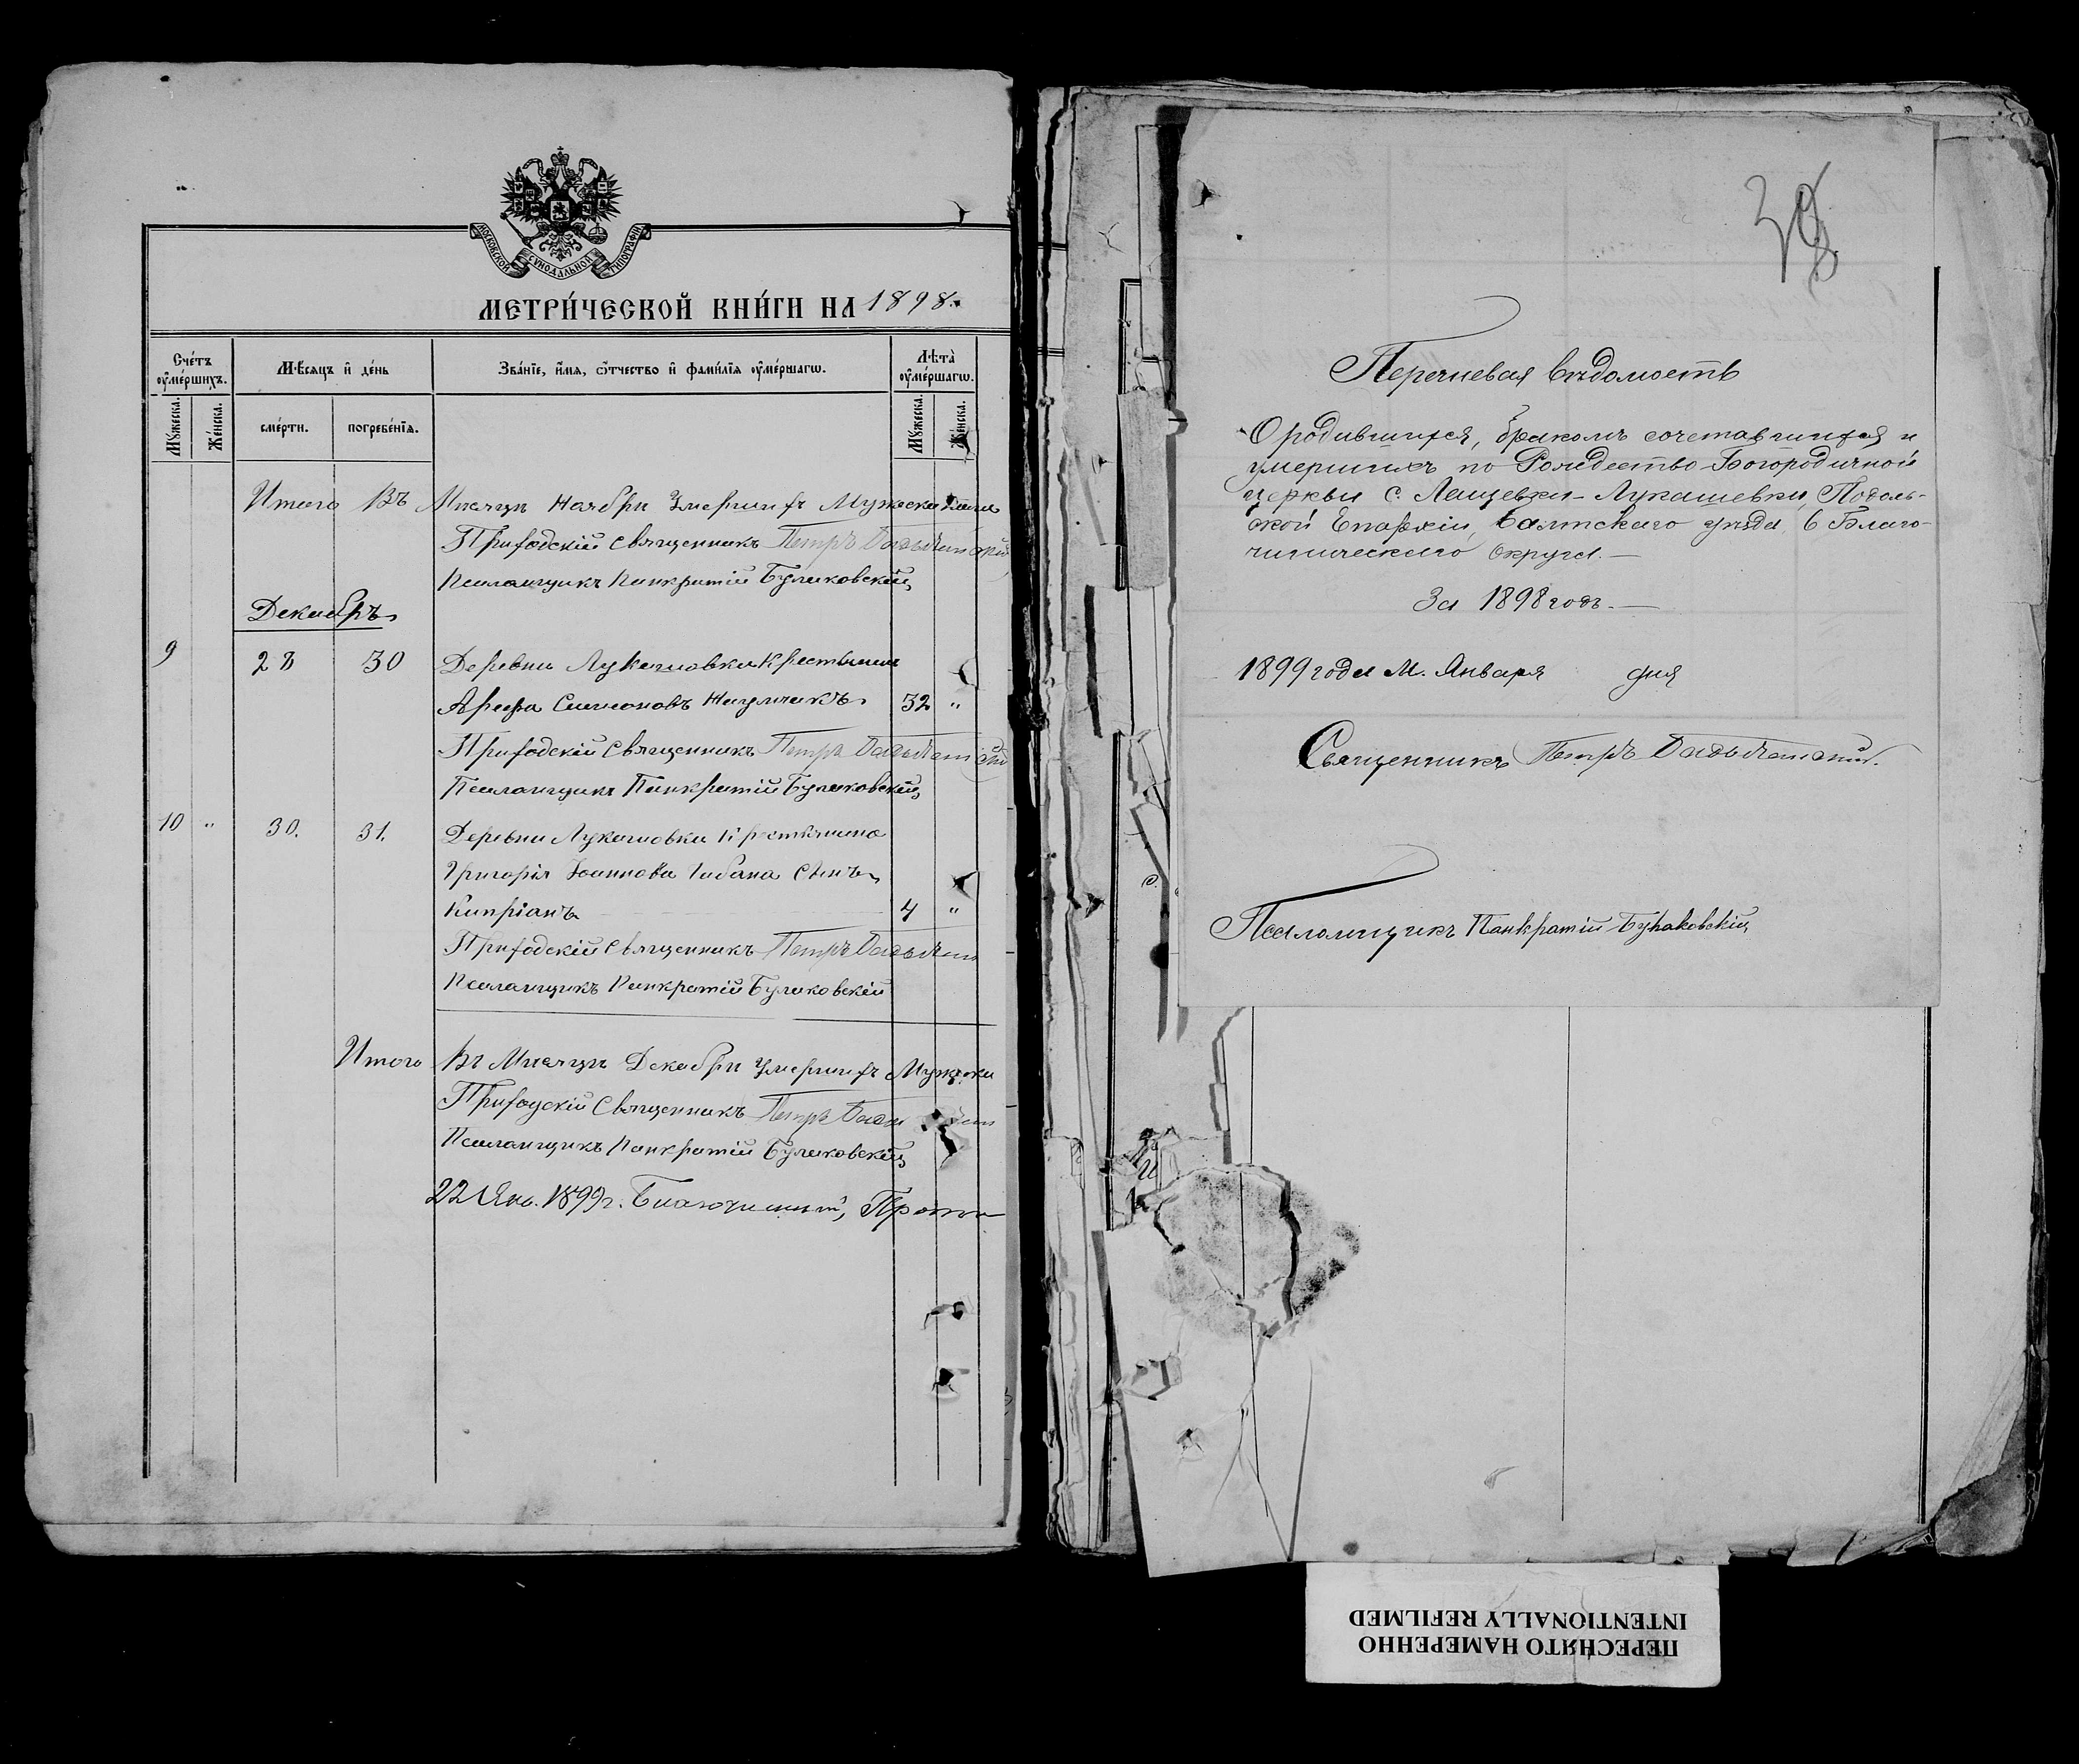 МОСКОВСКОЙ СѴНОДАЛЬНОЙ ТИПОГРАФІИ
МЕТРИ́ЧЕСКОЙ КНИ́ГИ НА 1898.
Сче́тъ ᲂу҆ме́ршихъ.
Мѣ́сяцъ и҆ де́нь
Зва́нїе, и҆́мѧ, ѻ҆́тчество и҆ фамі́лїѧ ᲂу҆ме́ршагѡ.
Лѣта̀ ᲂу҆ме́ршагѡ.
Мꙋ́жеска.
Же́нска.
сме́рти.
погребе́нїѧ.
Мꙋ́жеска.
Же́нска.
Итого Въ Мисяци Ноября Умершихъ Мужеска
Приходскій Священникъ Петръ
Псаломщикъ Панкратій Булаковскій
Декабрь
9 28 30 Деревни Лукашовки Крестьянинъ
Арефа Симеоновъ 32 "
Приходскій Священникъ Петръ
Псаломщикъ Панкратій Булаковскій
10 " 30. 31. Деревни Лукашовки Крестьянина
Григорія Іоаннова Чабана сынъ
Кипріанъ 4 "
Приходскій Священникъ Петръ
Псаломщикъ Панкратій Булаковскій
Итого Въ Мисяци Декабри Умершихъ Мужеска
Приходскій Священникъ Петръ
Псаломщикъ Панкратій Булаковскій
22 Янв. 1899 г. Благочинный,
Перечневая вѣдомость
О родившихся, бракомъ сочетавшихся и
умершихъ по Рождество-Богородичной
церкви с. Лащевки-Лукашевки, Подоль-
ской Епархіи, Балтскаго уѣзда, 6 Благо-
чинническаго округа.—
За 1898 годъ.—
1899 года М. Января дня
Священникъ Петръ
Псаломщикъ Панкратій Булаковскій
ПЕРЕСНЯТО НАМЕРЕННО
INTENTIONALLY REFILMED